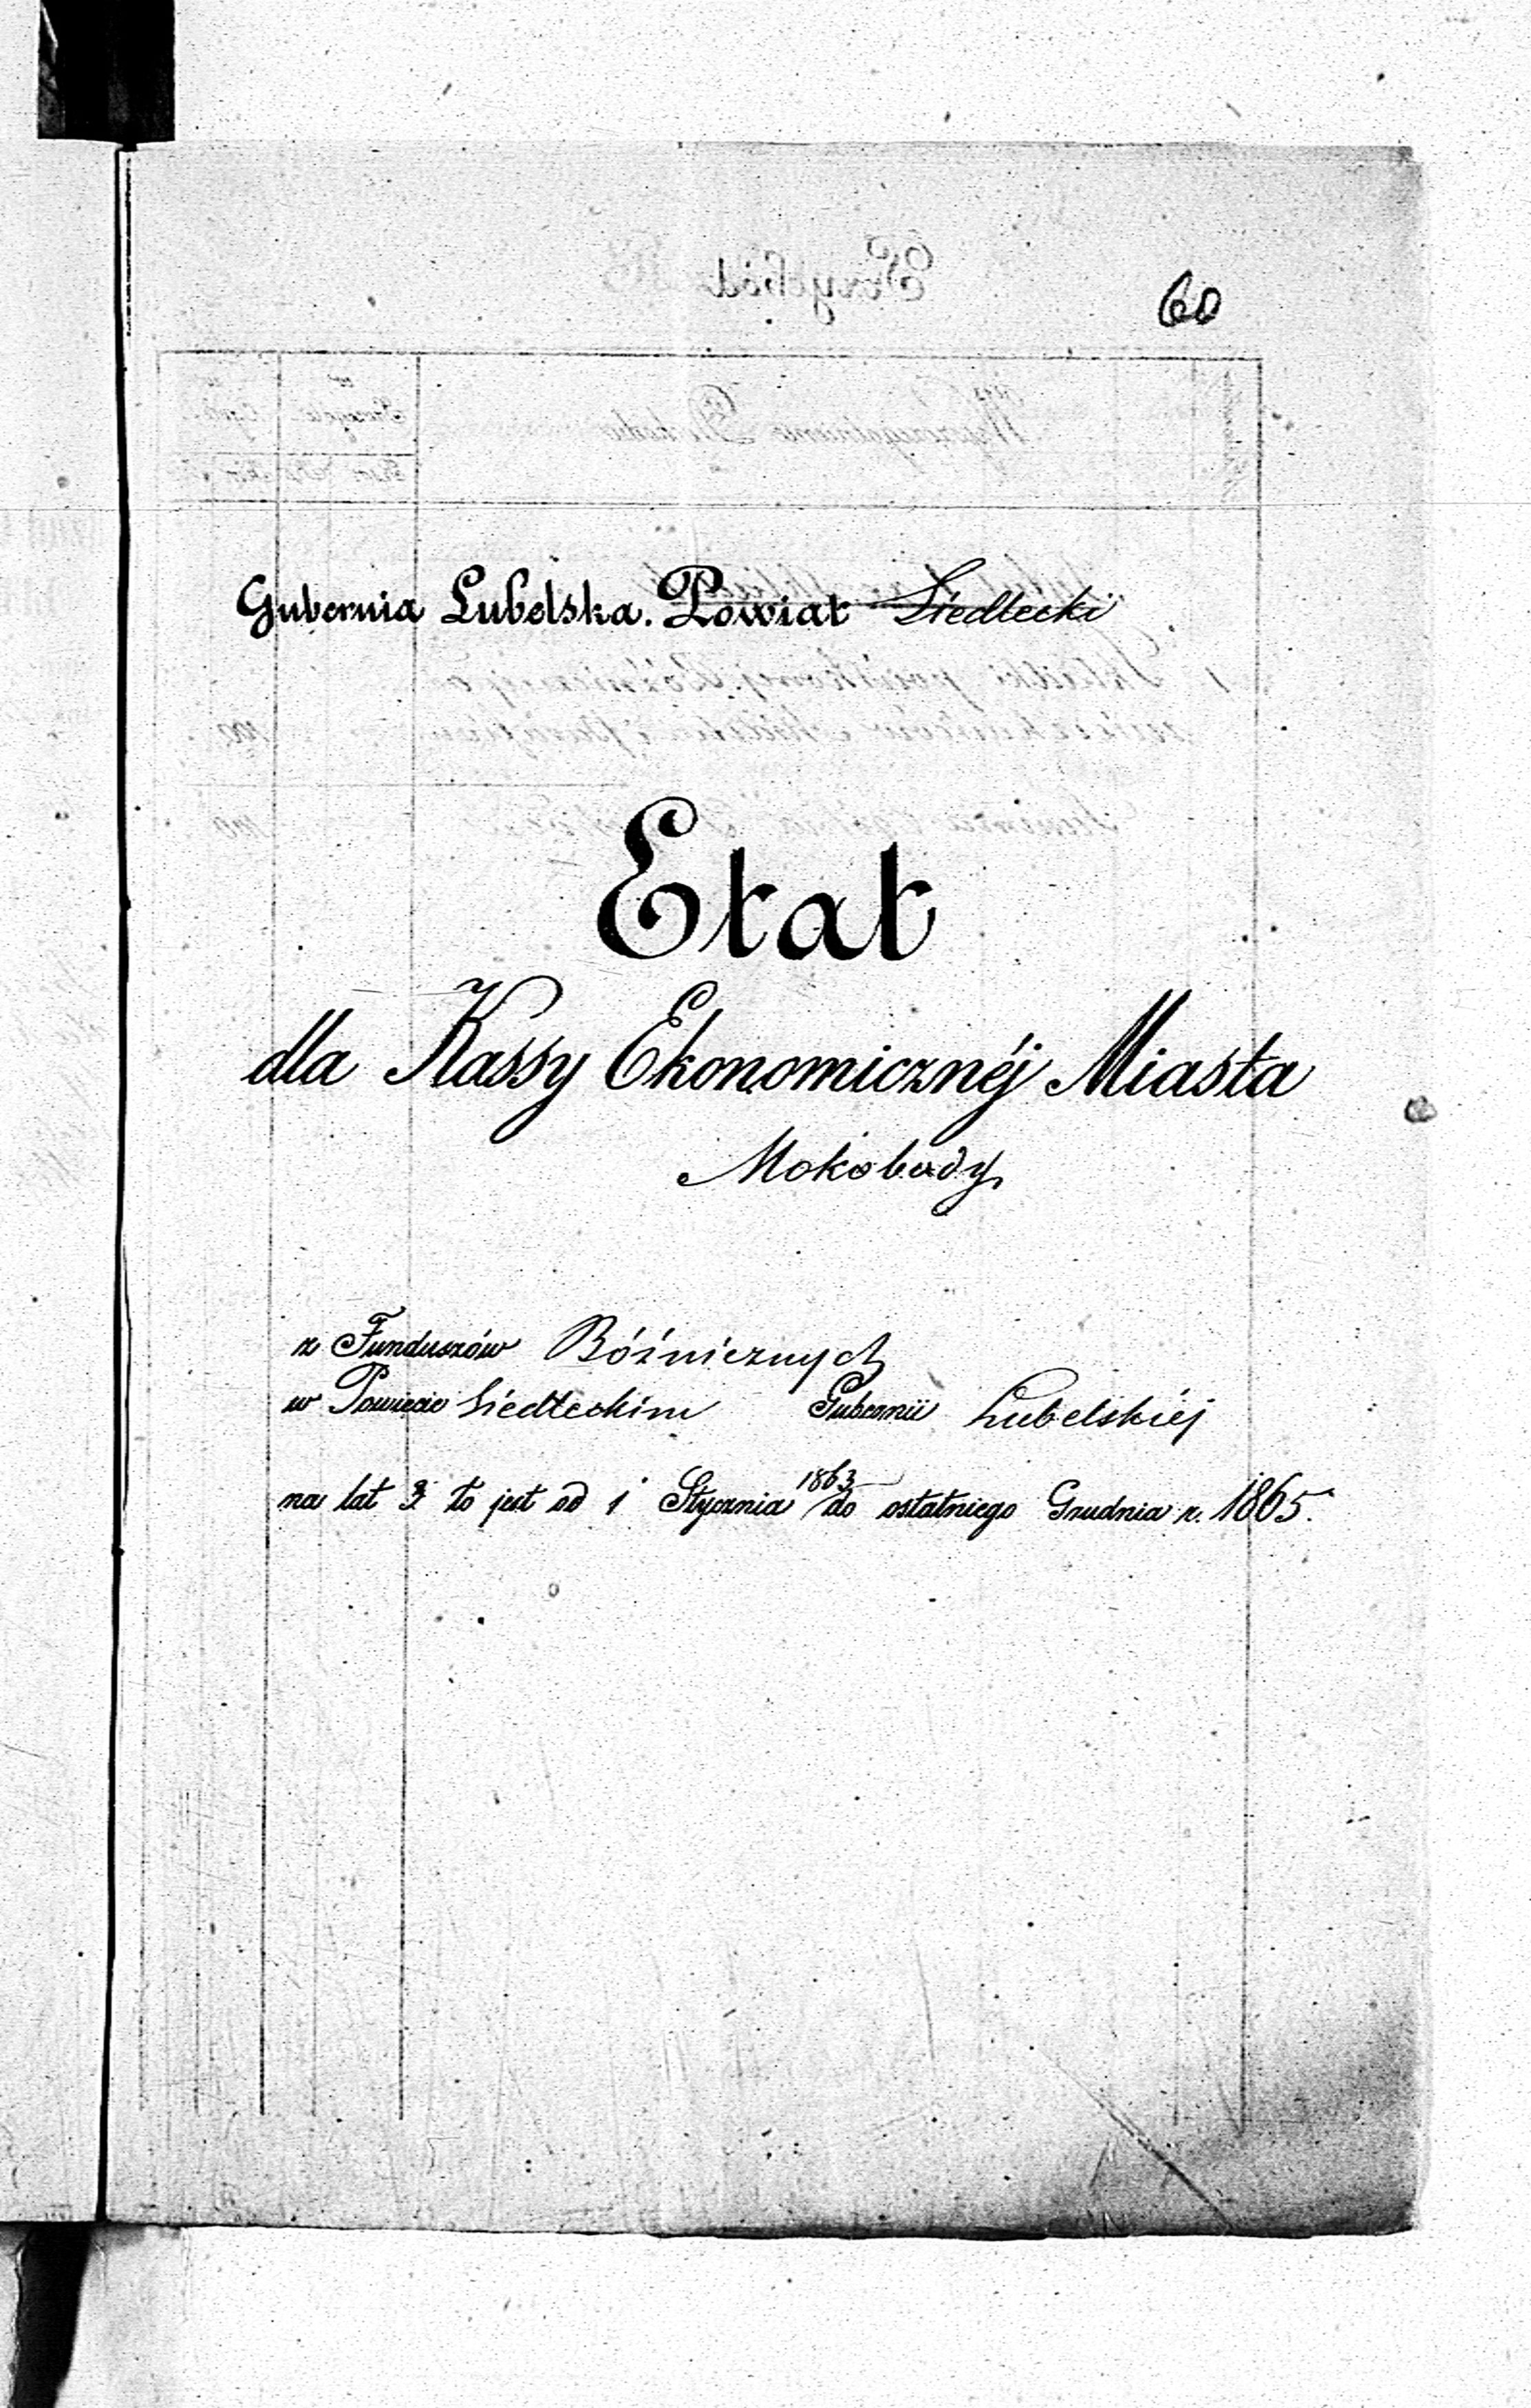 60
Gubernia Lubelska. Powiat Siedlecki
Etat
dla Kassy Ekonomicznéj Miasta
Mokobody
z Funduszów Bóżnicznych
w Powiecie Siedleckim Gubernii Lubelskiéj
na lat 3 to jest od 1 Stycznia 1863 do ostatniego Grudnia r. 1865.